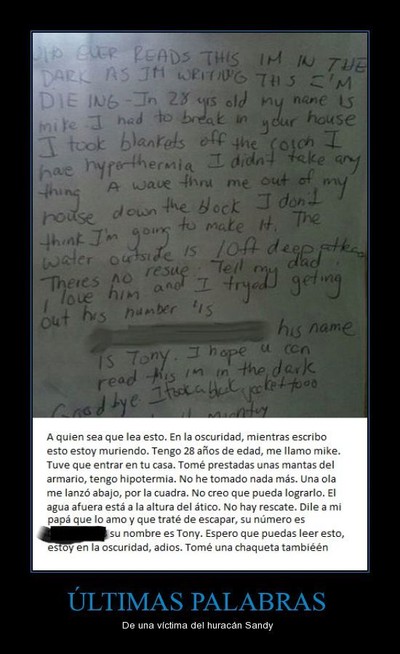 EVER READS THIS IM IN THE
DARK AS IM WRITING THIS I'M
DIEING-In 28 yrs old my name is
mike I had to break in your house
I took blankets off the coSch I
have hyperthermia I didn't take any
thing A wave thru me out of my
house down the block I don't
think I'm going to make it. The
water outside is 10ft deep
Theres no resue. Tell my dad
I love him and I tryed geting
out his number is
his name
is Tony. I hope u can
read this im in the dark
Good bye I took a black jacket tooo
A quien sea que lea esto. En la oscuridad, mientras escribo
esto estoy muriendo. Tengo 28 años de edad, me llamo mike.
Tuve que entrar en tu casa. Tomé prestadas unas mantas del
armario, tengo hipotermia. No he tomado nada más. Una ola
me lanzó abajo, por la cuadra. No creo que pueda lograrlo. El
agua afuera está a la altura del ático. No hay rescate. Dile a mi
papá que lo amo y que traté de escapar, su número es
su nombre es Tony. Espero que puedas leer esto,
estoy en la oscuridad, adios. Tomé una chaqueta tambiéén
ÚLTIMAS PALABRAS
De una víctima del huracán Sandy